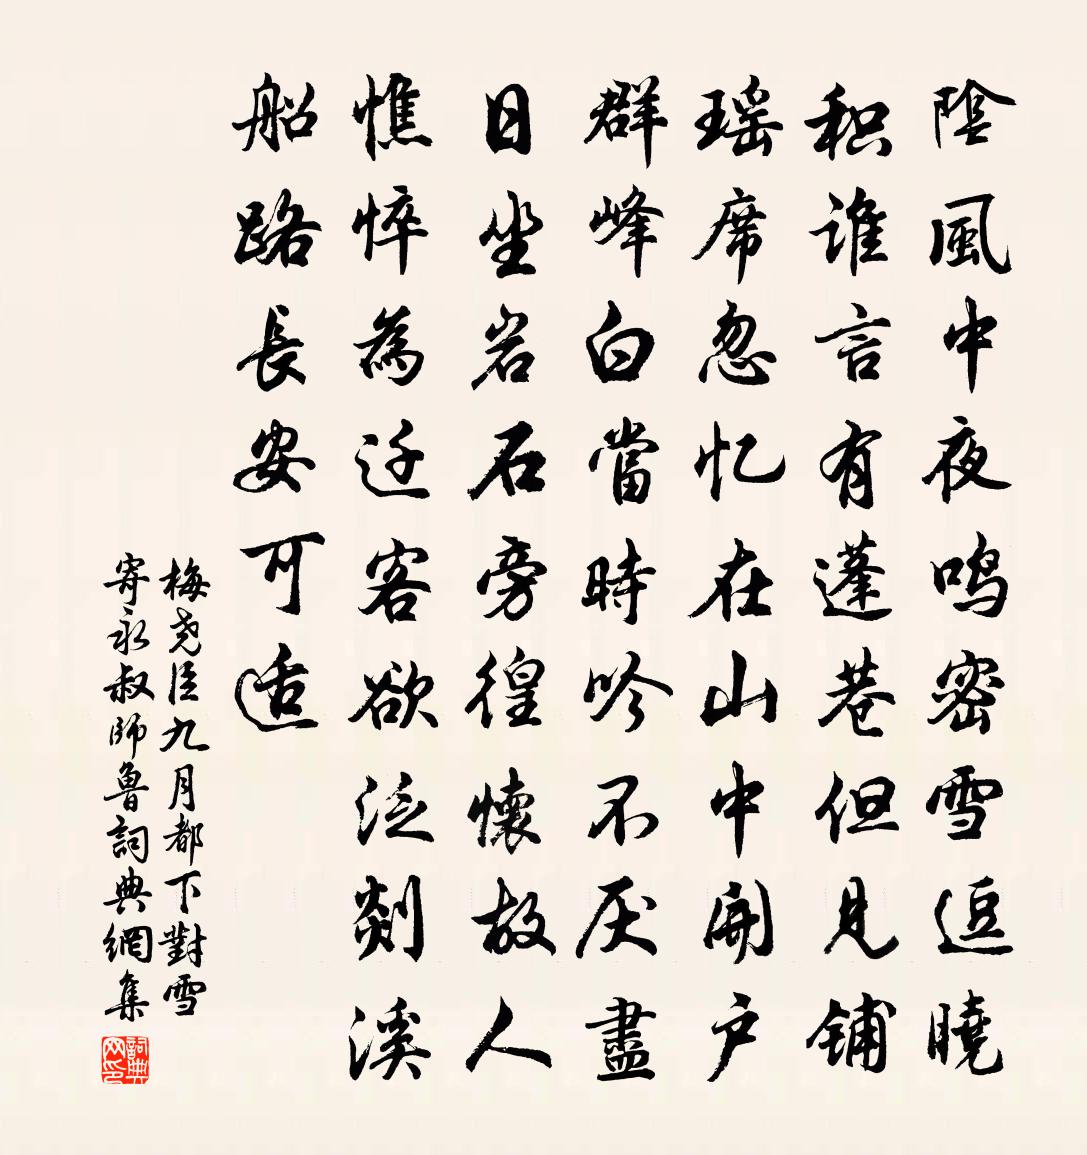 陰風中夜鳴密雪逗曉
积谁言有蓬巷但見铺
瑶席忽忆在山中開户
群峰白當時吟不厌盡
日坐岩石旁徨懷故人
憔悴為迁客欲泛剡溪
船路長安可适
梅尧臣九月都下對雪
寄永叔師魯詞典網集
詞典网印